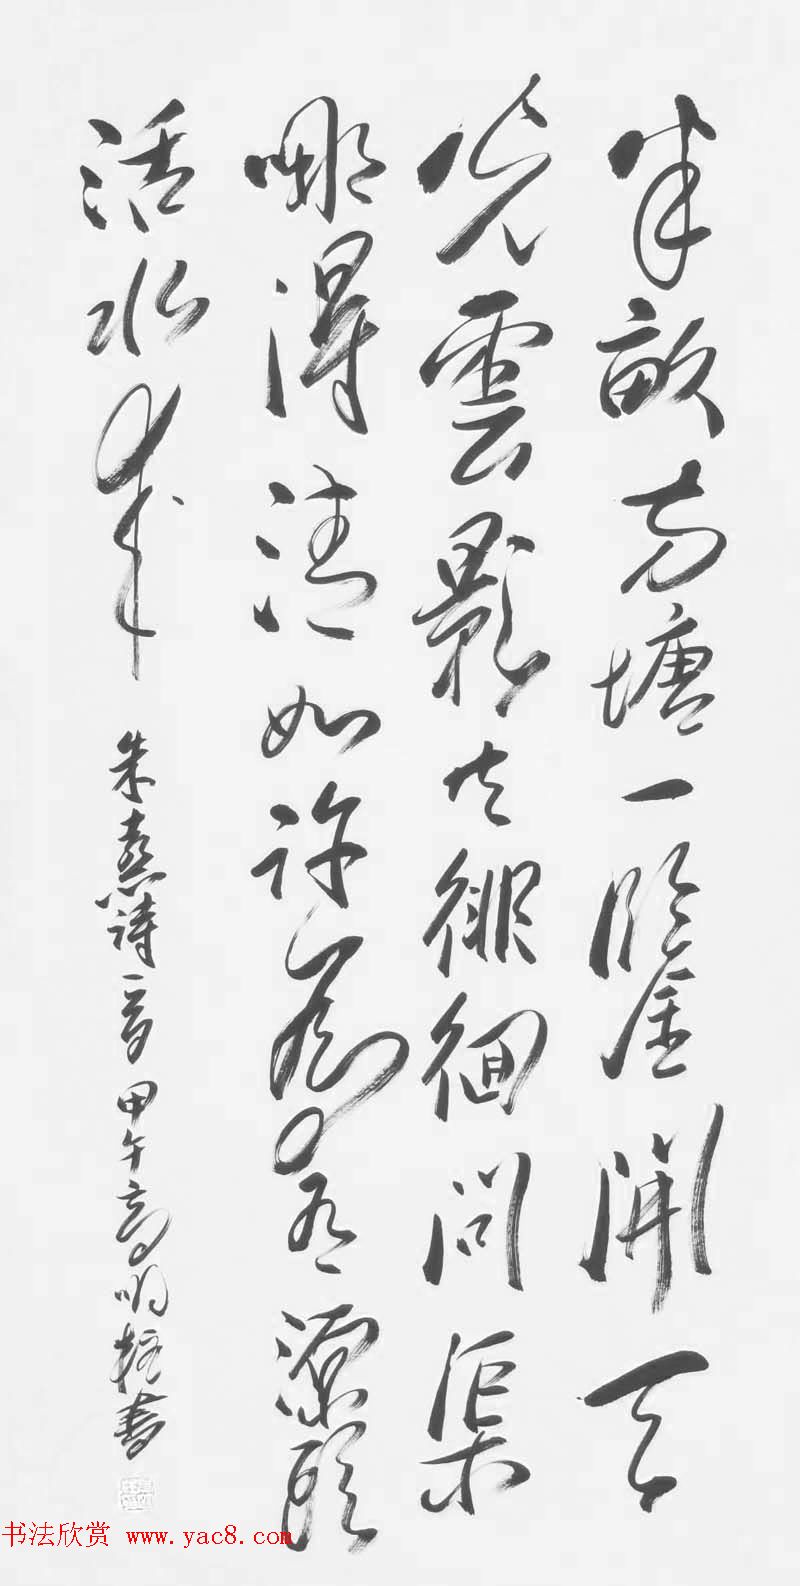 半畝方塘一鑒開天
光雲影共徘徊問渠
哪得清如許為有源頭
活水來
朱熹詩一首甲午高明書
书法欣赏 www.yac8.com